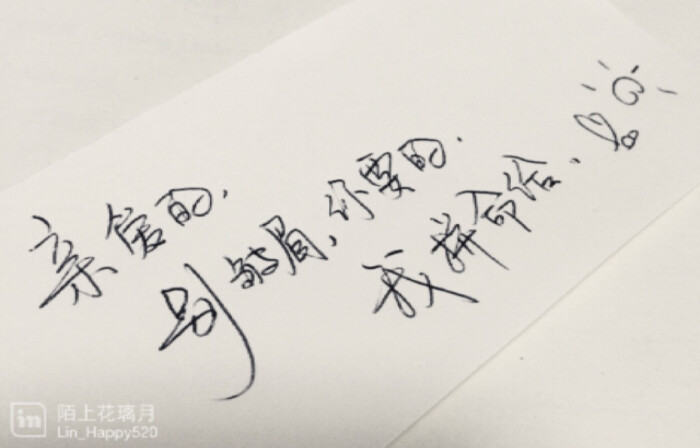 亲爱的.
别皱眉,你要的.
我拼命给.
in 陌上花璃月
Lin_Happy520